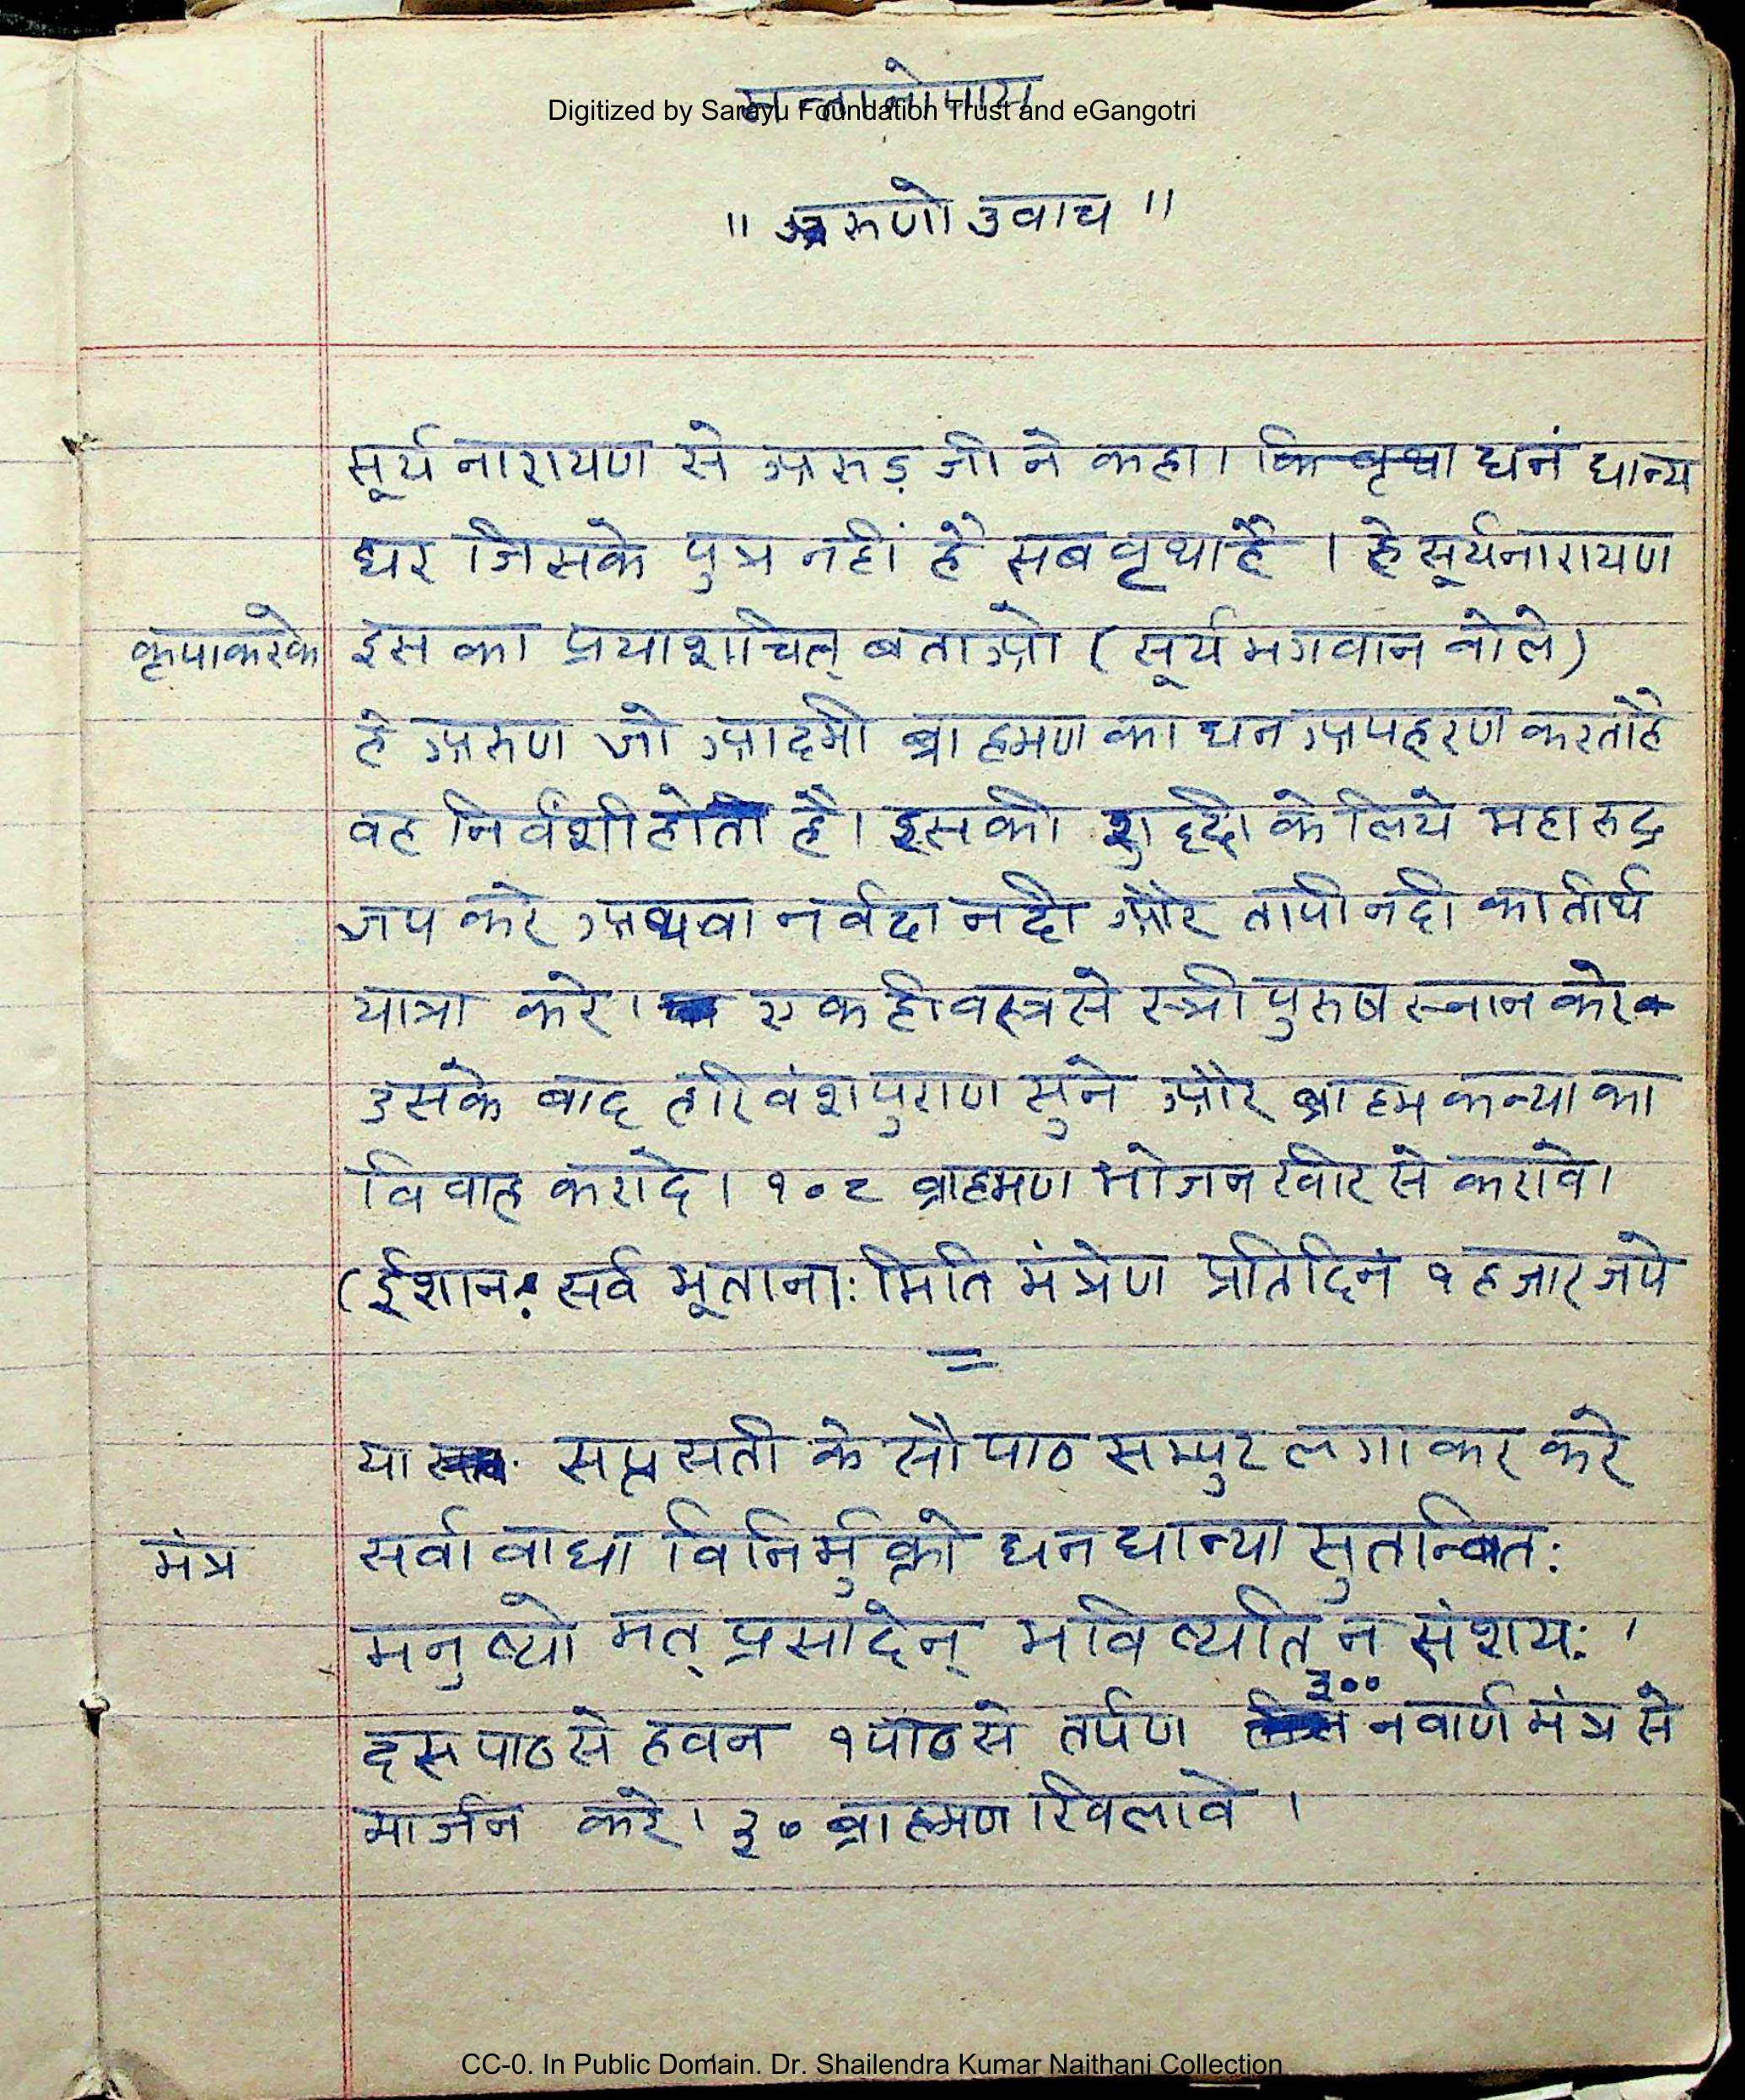 सन्तानोपाय
Digitized by Sarayu Foundation Trust and eGangotri
" अरुणो उवाच "
सूर्य नारायण से अरुड़ जी ने कहा। कि वृथा धनं धान्य
घर जिसके पुत्र नहीं है सब वृथा है । हे सूर्यनारायण
कृपाकरके इस का प्रयाशचित् बताओ ( सूर्य भगवान बोले )
हे अरुण जो आदमी ब्राहमण का धन अपहरण करता है
वह निर्वंशी होता है। इसकी शुद्दी के लिये महा रुद्र
जप करे अथवा नर्वदा नदी और तापी नदी का तीर्थ
यात्रा करे। एक ही वस्त्र से स्त्री पुरुष स्नान करे
उसके बाद हरिवंश पुराण सुने और ब्राहम कन्या का
विवाह करादे। १०८ ब्राहमण भोजन खीर से करावे।
( ईशानः सर्व भूतानाः मिति मंत्रेण प्रतिदिनं १ हजार जपे
=
या सप्तसती के सौ पाठ सम्पुट लगा कर करे
मंत्र सर्वा वाधा विनिर्मुक्तो धन धान्या सुतान्वितः
मनुष्यो मत् प्रसादेन् भविष्यति न संशयः ।
३००
दस पाठ से हवन १ पाठ से तर्पण नवार्ण मंत्र से
मार्जन करे। ३० ब्राहमण खिलावे ।
CC-0. In Public Domain. Dr. Shailendra Kumar Naithani Collection